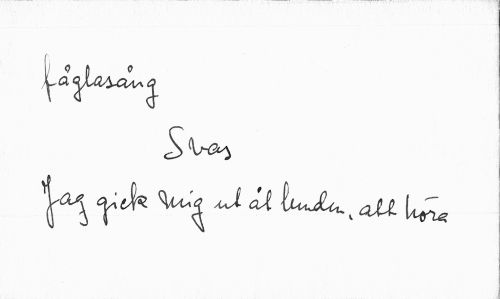 fåglasång
Svas
Jag gick mig ut åt lunden, att höra